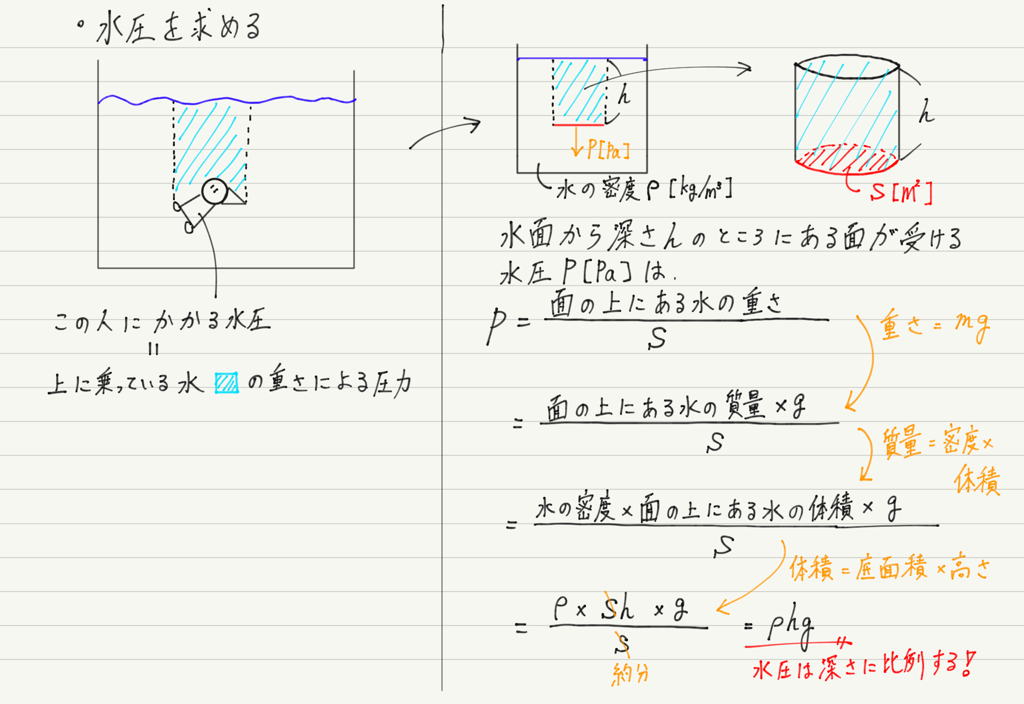 ・水圧を求める
この人にかかる水圧
=
上に乗っている水 の重さによる圧力
h
P[Pa]
水の密度ρ[kg/m³]
h
S[m²]
水面から深さhのところにある面が受ける
水圧P[Pa]は.
P = 面の上にある水の重さ / S
重さ = mg
= 面の上にある水の質量×g / S
質量=密度×
体積
= 水の密度×面の上にある水の体積×g / S
体積=底面積×高さ
= ρ × Sh × g / S = ρhg
約分
水圧は深さに比例する!